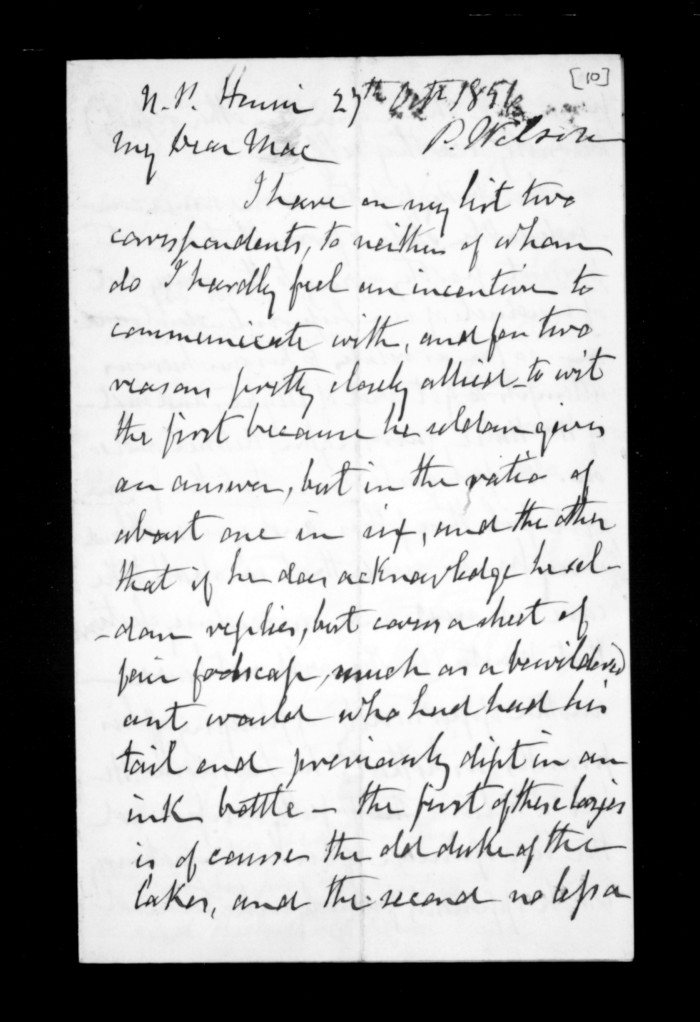 [10]
N. P. Huni 27th Octr 1856
P. Wilson
My Dear Mac
I have on my list two
correspondents, to neither of whom
do I hardly feel an incentive to
communicate with, and for two
reasons pretty closely allied - to wit
the first because he seldom gives
an answer, but in the ratio of
about one in six, and the other
that if he does acknowledge he sel-
-dom replies, but covers a sheet of
fair foolscap, much as a bewildered
ant would who had had his
tail end previously dipt in an
ink bottle - the first of these
is of course the old duke of the
Lakes, and the second no less a